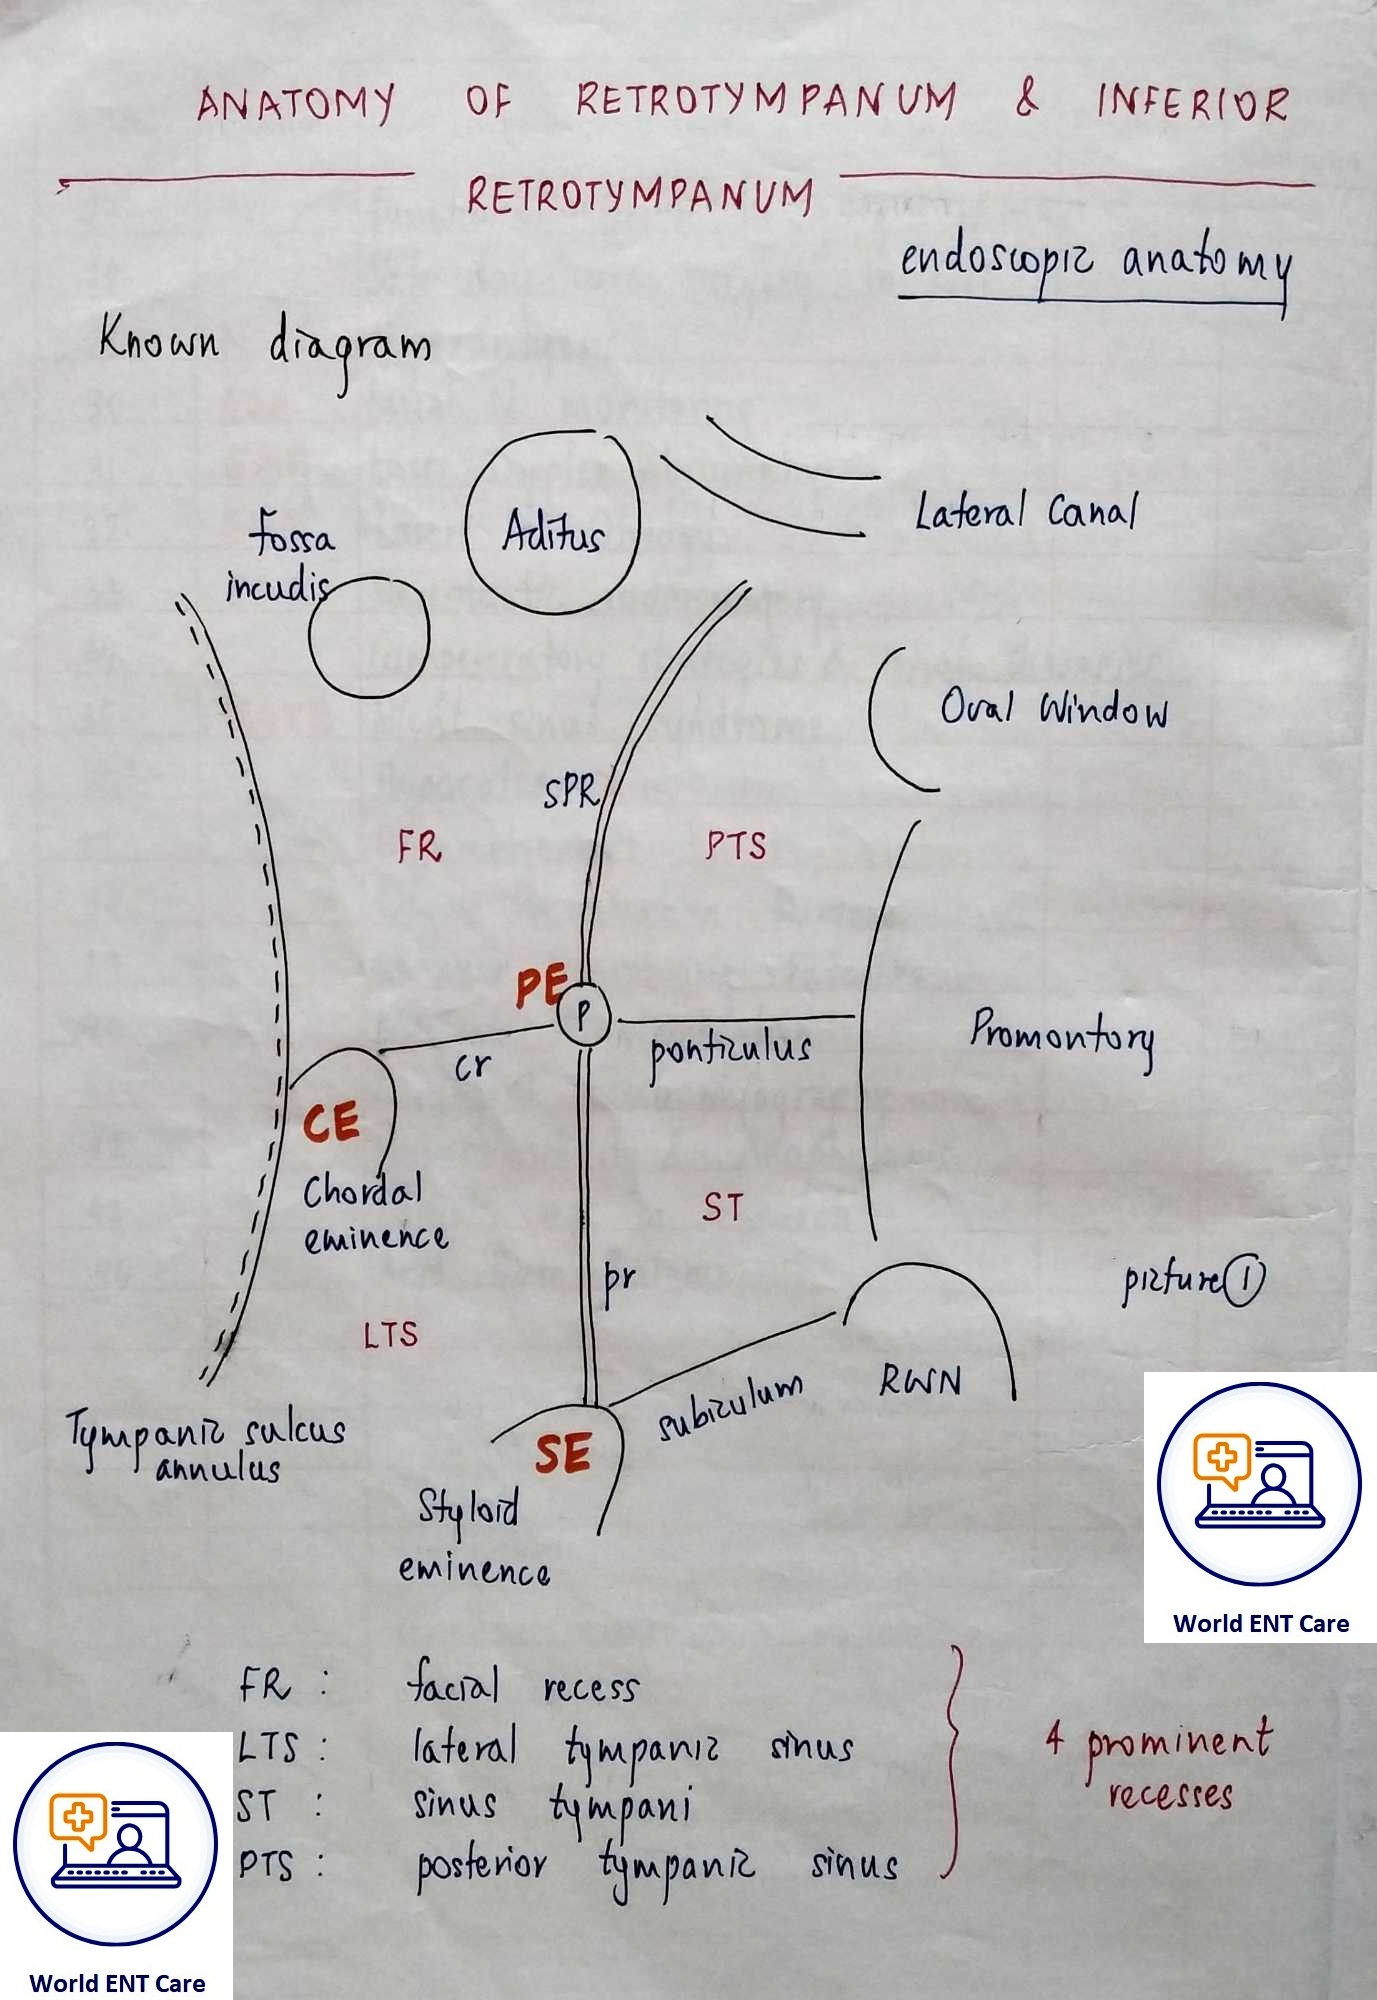 ANATOMY OF RETROTYMPANUM & INFERIOR
RETROTYMPANUM
endoscopic anatomy
Known diagram
Aditus
Lateral Canal
Fossa
incudis
Oval Window
SPR
FR
PTS
PE
P
cr
ponticulus
Promontory
CE
Chordal
eminence
ST
pr
picture 1
LTS
RWN
subiculum
Tympanic sulcus
annulus
SE
Styloid
eminence
World ENT Care
FR : facial recess
LTS : lateral tympanic sinus
ST : sinus tympani
PTS : posterior tympanic sinus
4 prominent
recesses
World ENT Care